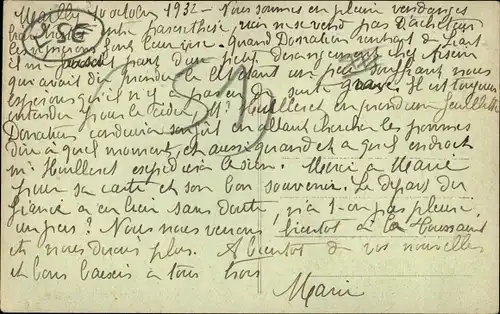 Mailly 10 octobre 1932 - Nous sommes en pleine vendanges
entre parenthèse, rien ne se vend pas d'acheteur
. Quand Donatien rentrant de
il me part d'un petit dérangement chez
qui avait dû prendre le lit étant un peu souffrant nous
espérons qu'il n'y a pas eu de suite grave. Il est toujours
entendu pour le cidre, Mr Huilleret en prend un feuillette
Donatien conduira son fût en allant chercher les pommes
dire à quel moment, et aussi quand et à quel endroit
Mr Huilleret expédiera le sien. Merci à Marie
pour sa carte et son bon souvenir. Le départ du
fiancé a eu lieu sans doute, n'a t-on pas pleuré
un peu? Nous nous verrons bientôt à la Toussaint
et nous dirons plus. A bientôt de vos nouvelles
et bons baisers à tous trois
Marie